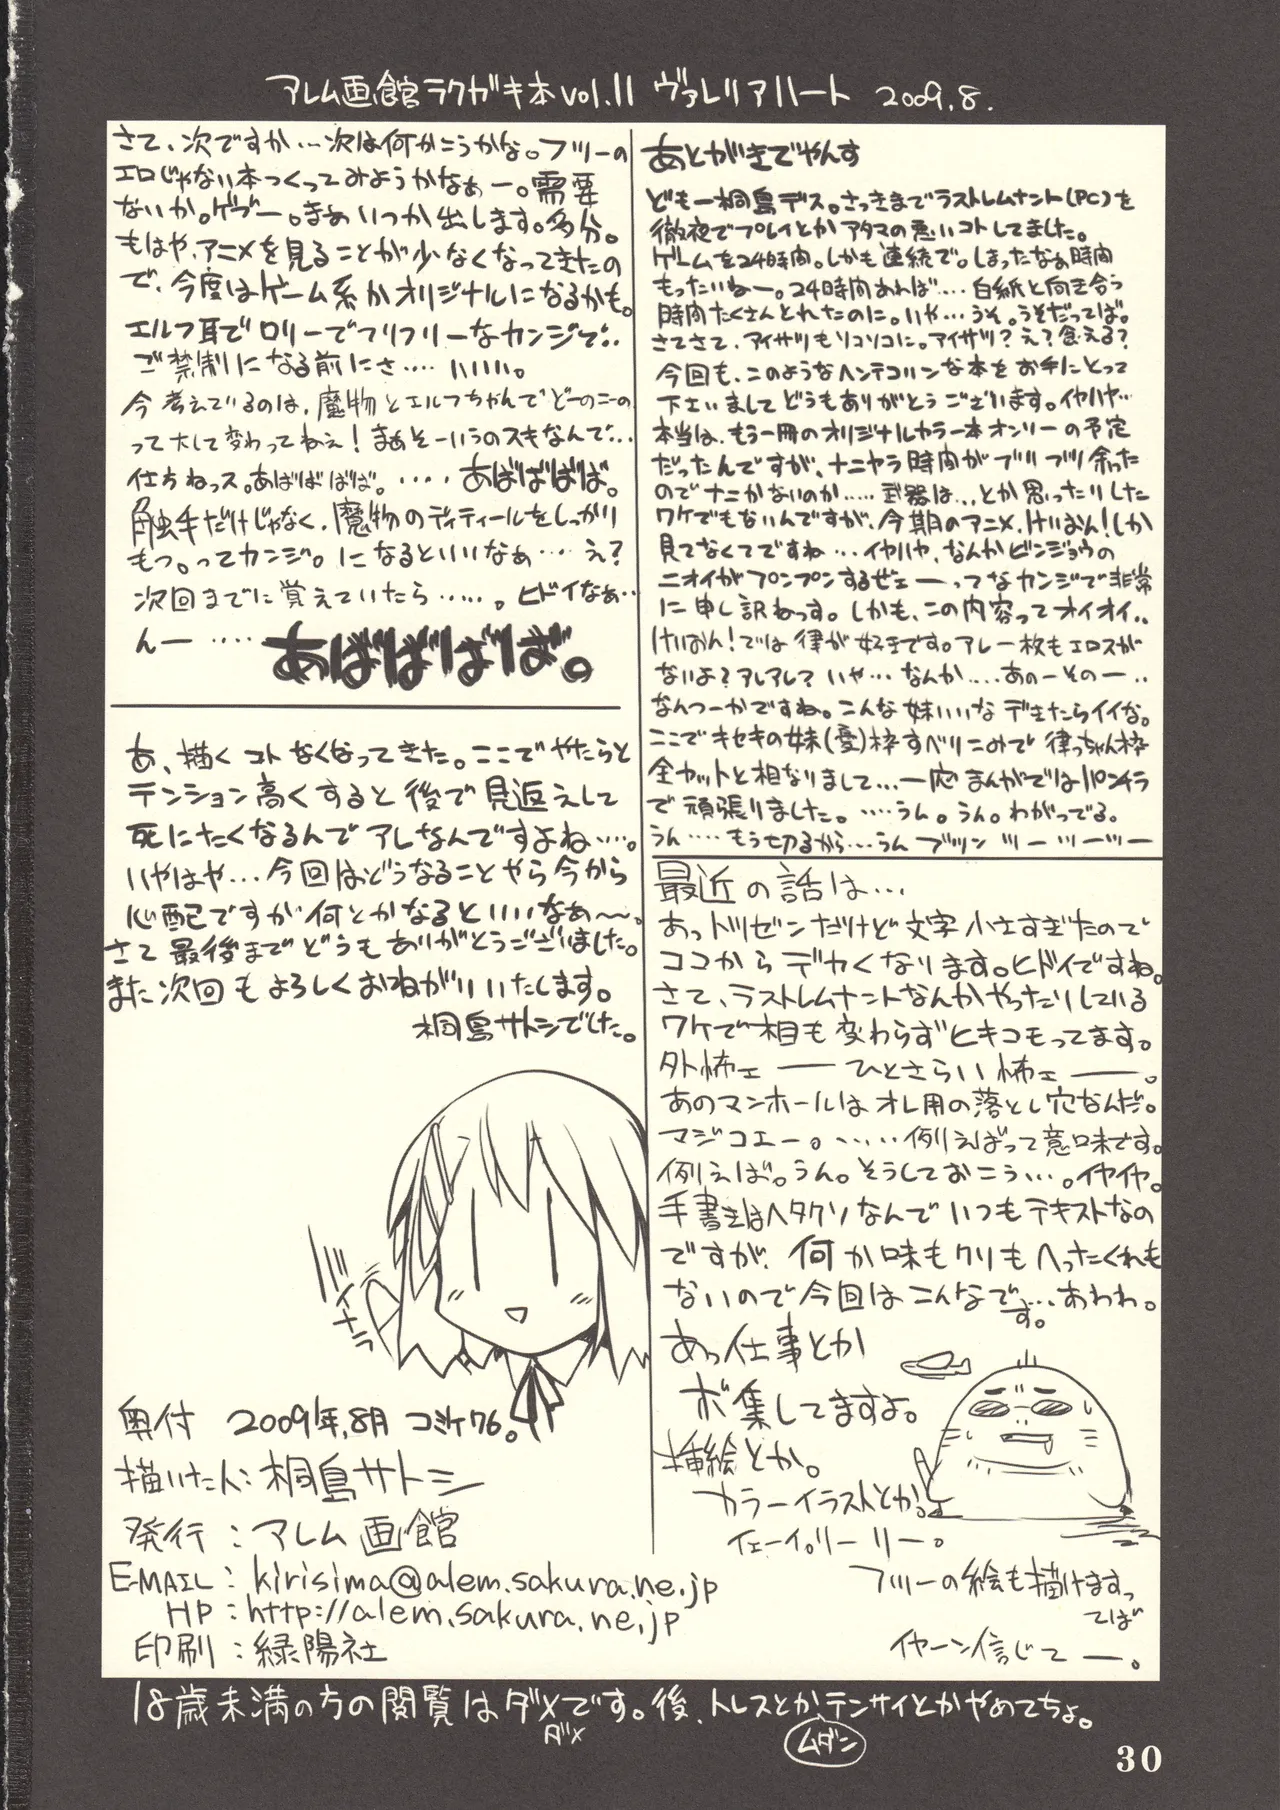 アレム画館ラクガキ本vol.11 ヴァレリアハート 2009.8.
あとがきでやんす
どもー桐島デス。さっきまでラストレムナント(PC)を
徹夜でプレイとかアタマの悪いコトしてました。
ゲームを24時間。しかも連続で。しまったなぁ時間
もったいねー。24時間あれば…白紙と向き合う
時間たくさんとれたのに。いや…うそ。うそだってば。
さてさて、アイサツもソコソコに。アイサツ?え?食える?
今回も、このようなヘンテコリンな本をお手にとって
下さいましてどうもありがとうございます。イヤハヤ…
本当は、もう一冊のオリジナルカラー本オンリーの予定
だったんですが、ナニヤラ時間がブリブリ余った
のでナニかないのか……武器は…とか思ったりした
ワケでもないんですが、今期のアニメ、けいおん!しか
見てなくてですね…イヤハヤ、なんかビンジョウの
ニオイがプンプンするぜェーってなカンジで非常
に申し訳ねっす。しかも、この内容ってオイオイ..
けいおん!では律が好きです。アレ一枚もエロスが
ないよ?アレアレ?いや…なんか….あのーそのー..
なんつーかですね。こんな妹いいなデキたらイイな。
ここでキセキの妹(憂)枠すべりこみで律っちゃん枠
全カットと相なりまして…一応まんがではパンチラ
で頑張りました。….うん。うん。わがってる。
うん….もう切るから…うんブツンツーツーツー
最近の話は…
あっトツゼンだけど文字小さすぎたので
ココからデカくなります。ヒドイですね。
さて、ラストレムナントなんかやったりしている
ワケで相も変わらずヒキコモってます。
外怖ェーひとさらい怖ェー。
あのマンホールはオレ用の落とし穴なんだ。
マジコエー。……例えばって意味です。
例えば。うん。そうしておこう…。イヤイヤ。
手書きはヘタクソなんでいつもテキストなの
ですが、何か味もクソもへったくれも
ないので今回はこんなです。…あわわ。
あっ仕事とか
ボ集してますよ。
挿絵とか。
カラーイラストとか。よ
イェーイ。リーリー。
フツーの絵も描けますっ
てば
イヤーン信じてー。
さて、次ですか…次は何かこうかな。フツーの
エロじゃない本つくってみようかなぁー。需要
ないか。ゲブー。まぁいつか出します。多分。
もはや、アニメを見ることが少なくなってきたの
で、今度はゲーム系かオリジナルになるかも。
エルフ耳でロリーでフリフリーなカンジで..
ご禁制になる前にさ….いいい。
今考えているのは、魔物とエルフちゃんでどーのこーの
って大して変わってねぇ!まぁそーいうのスキなんで…
仕方ねっス。あばばばば。….あばばばば。
触手だけじゃなく、魔物のディティールをしっかり
もつ。ってカンジ。になるといいなぁ…え?
次回までに覚えていたら……。ヒドイなぁ…
んー….あばばばば。
あ、描くコトなくなってきた。ここでやたらと
テンション高くすると後で見返えして
死にたくなるんでアレなんですよね….。
いやはや…今回はどうなることやら今から
心配ですが何とかなるといいなぁ〜。
さて最後までどうもありがとうございました。
また次回もよろしくおねがいいたします。
桐島サトシでした。
奥付 2009年.8月 コミケ76。
描いた人:桐島サトシ
発行:アレム画館
E-MAIL:kirisima@alem.sakura.ne.jp
HP:http://alem.sakura.ne.jp
印刷:緑陽社
18歳未満の方の閲覧はダメです。後、トレスとか、テンサイとかやめてちょ。
ダメ
ムダン
30